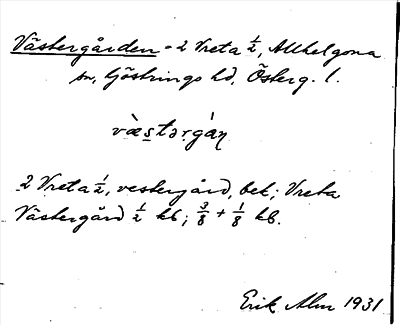 Västergården = 2 Vreta ½, Allhelgona
sn, Göstrings hd, Österg. l.
væ̀stərgán
2 Vreta ½, vestergård, bek; Vreta
Västergård ½ kb; ⅜ + ⅛ kb.
Erik Alm 1931